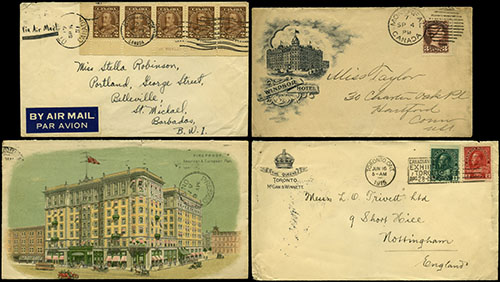 Via Air Mail
CANADA CANADA CANADA CANADA CANADA
CANADA
Miss Stella Robinson,
Portland, George Street,
Belleville,
St. Michael,
Barbados,
B. W. I.
BY AIR MAIL
PAR AVION
SP 4
PM
CANADA
WINDSOR
HOTEL
Miss Taylor
30 Charter Oak Pl
Hartford
Conn
FIREPROOF
THE QUEEN'S
TORONTO
McGAW & WINNETT
TORONTO
JUN 16
6-AM
1915
CANADIAN
EXHI
TORO
Messrs L. O. Trivett Ltd
9 Short Hill
Nottingham
England